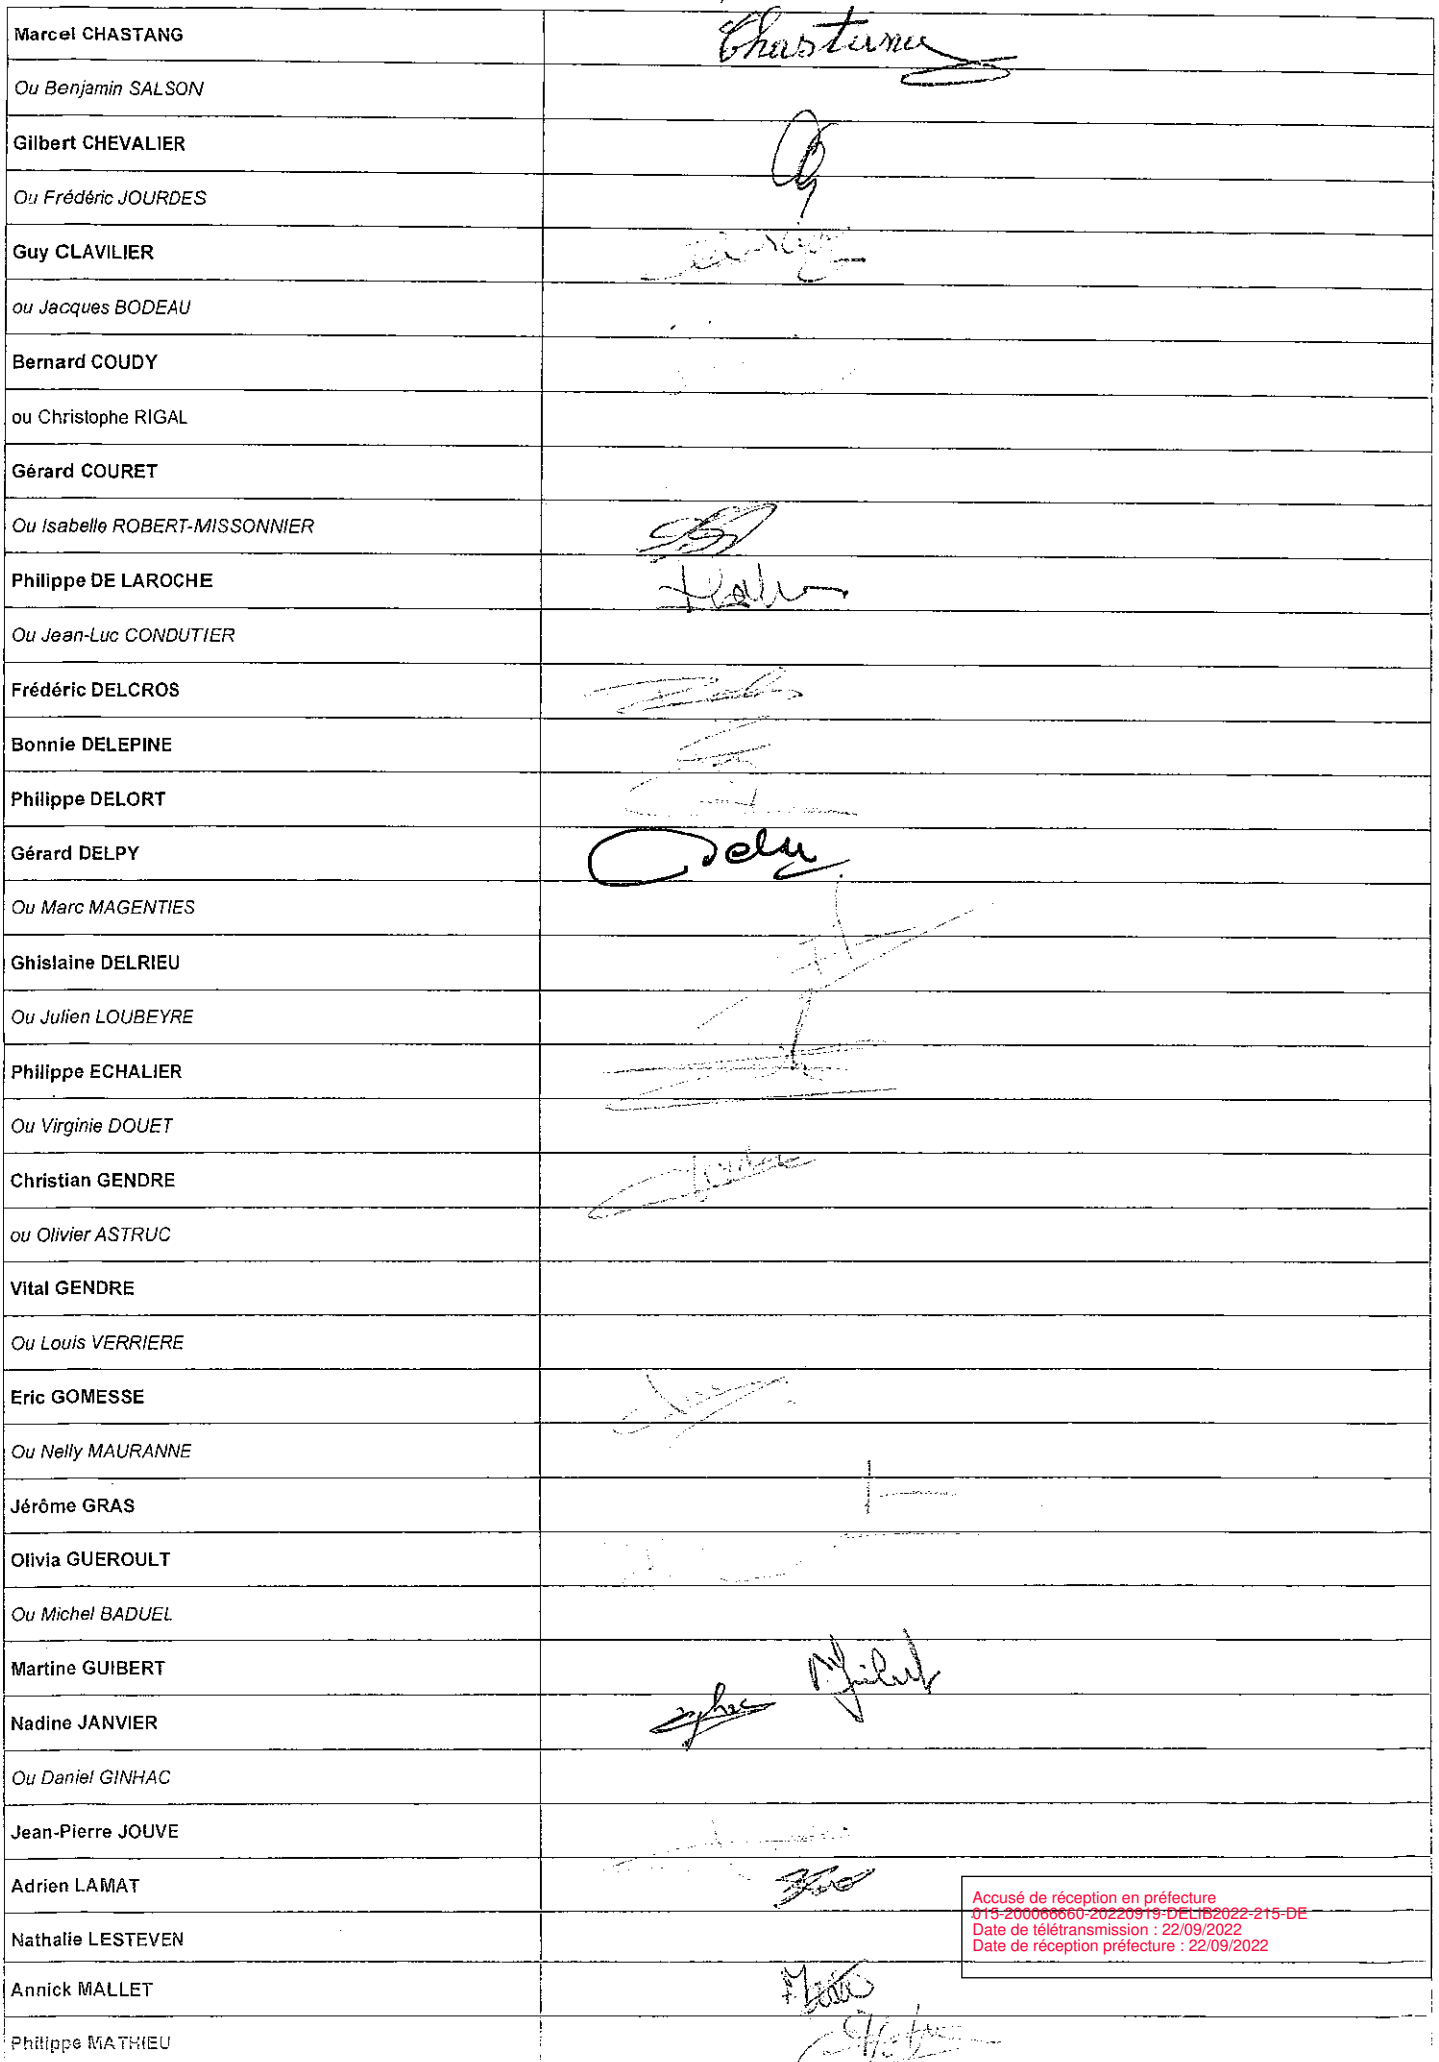 Marcel CHASTANG
Chastang
Ou Benjamin SALSON
Gilbert CHEVALIER
Ou Frédéric JOURDES
Guy CLAVILIER
ou Jacques BODEAU
Bernard COUDY
ou Christophe RIGAL
Gérard COURET
Ou Isabelle ROBERT-MISSONNIER
Philippe DE LAROCHE
Ou Jean-Luc CONDUTIER
Frédéric DELCROS
Bonnie DELEPINE
Philippe DELORT
Gérard DELPY
Ou Marc MAGENTIES
Ghislaine DELRIEU
Ou Julien LOUBEYRE
Philippe ECHALIER
Ou Virginie DOUET
Christian GENDRE
ou Olivier ASTRUC
Vital GENDRE
Ou Louis VERRIERE
Eric GOMESSE
Ou Nelly MAURANNE
Jérôme GRAS
Olivia GUEROULT
Ou Michel BADUEL
Martine GUIBERT
Nadine JANVIER
Ou Daniel GINHAC
Jean-Pierre JOUVE
Adrien LAMAT
Nathalie LESTEVEN
Annick MALLET
Philippe MATHIEU
Accusé de réception en préfecture
015-200066660-20220919-DELIB2022-215-DE
Date de télétransmission : 22/09/2022
Date de réception préfecture : 22/09/2022